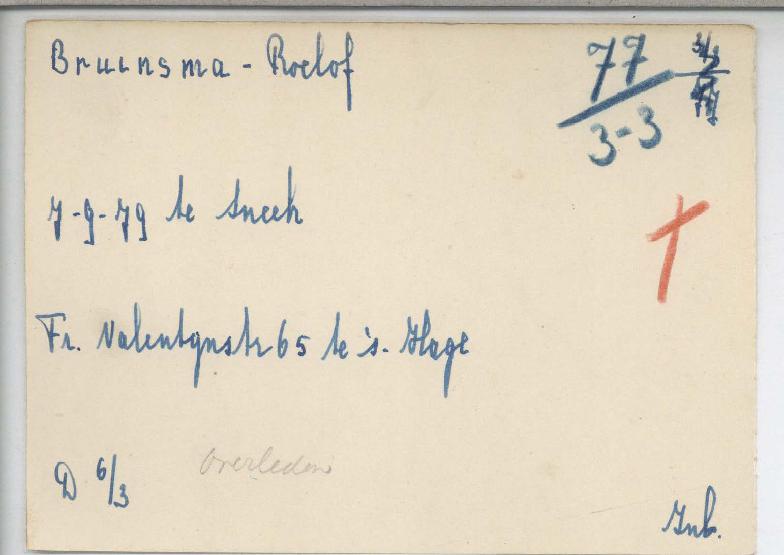 Bruinsma - Roelof
77
3-3
7-9-79 te Sneek
Fr. Valentynstr 65 te 's. Hage
D 6/3
overleden
Inb.